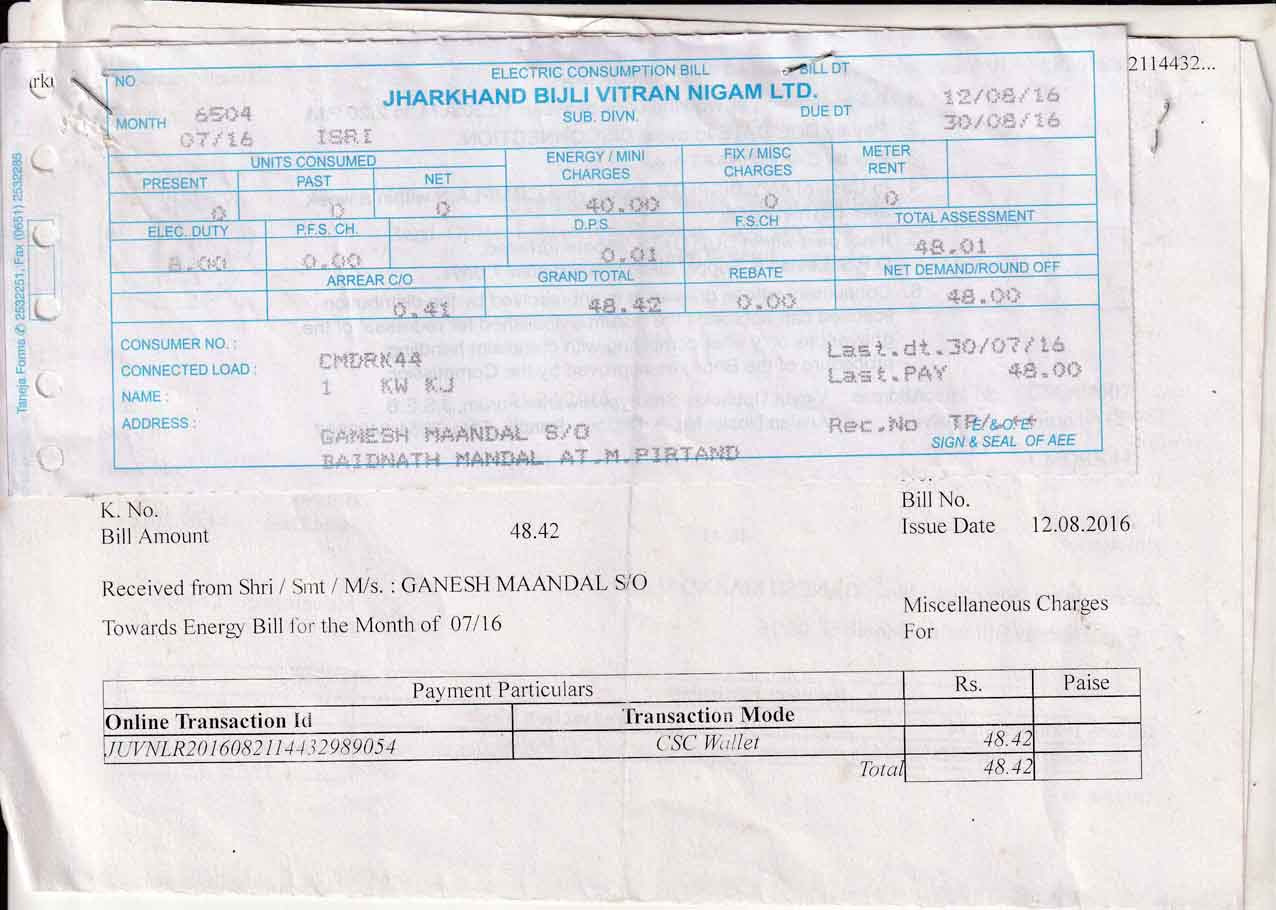 rku
2114432...
NO ELECTRIC CONSUMPTION BILL BILL DT
JHARKHAND BIJLI VITRAN NIGAM LTD. 12/08/16
6504 SUB. DIVN. DUE DT
MONTH 07/16 ISRI 30/08/16
UNITS CONSUMED ENERGY / MINI CHARGES FIX / MISC CHARGES METER RENT
PRESENT PAST NET
0 0 0 40.00 0 0
ELEC. DUTY P.F.S. CH. D.P.S. F.S.CH TOTAL ASSESSMENT
8.00 0.00 0.01 48.01
ARREAR C/O GRAND TOTAL REBATE NET DEMAND/ROUND OFF
0.41 48.42 0.00 48.00
CONSUMER NO. : CMDRK44 Last.dt.30/07/16
CONNECTED LOAD : 1 KW KJ Last.PAY 48.00
NAME :
ADDRESS : GANESH MAANDAL S/O Rec.No E.&.O.E
SIGN & SEAL OF AEE
BAIDNATH MANDAL AT.M.PIRTAND
Taneja Forms ✆ 2532251, Fax (0651) 2532285
K. No. Bill No.
Bill Amount 48.42 Issue Date 12.08.2016
Received from Shri / Smt / M/s. : GANESH MAANDAL S/O
Miscellaneous Charges
Towards Energy Bill for the Month of 07/16 For
Payment Particulars Rs. Paise
Online Transaction Id Transaction Mode
JUVNLR2016082114432989054 CSC Wallet 48.42
Total 48.42